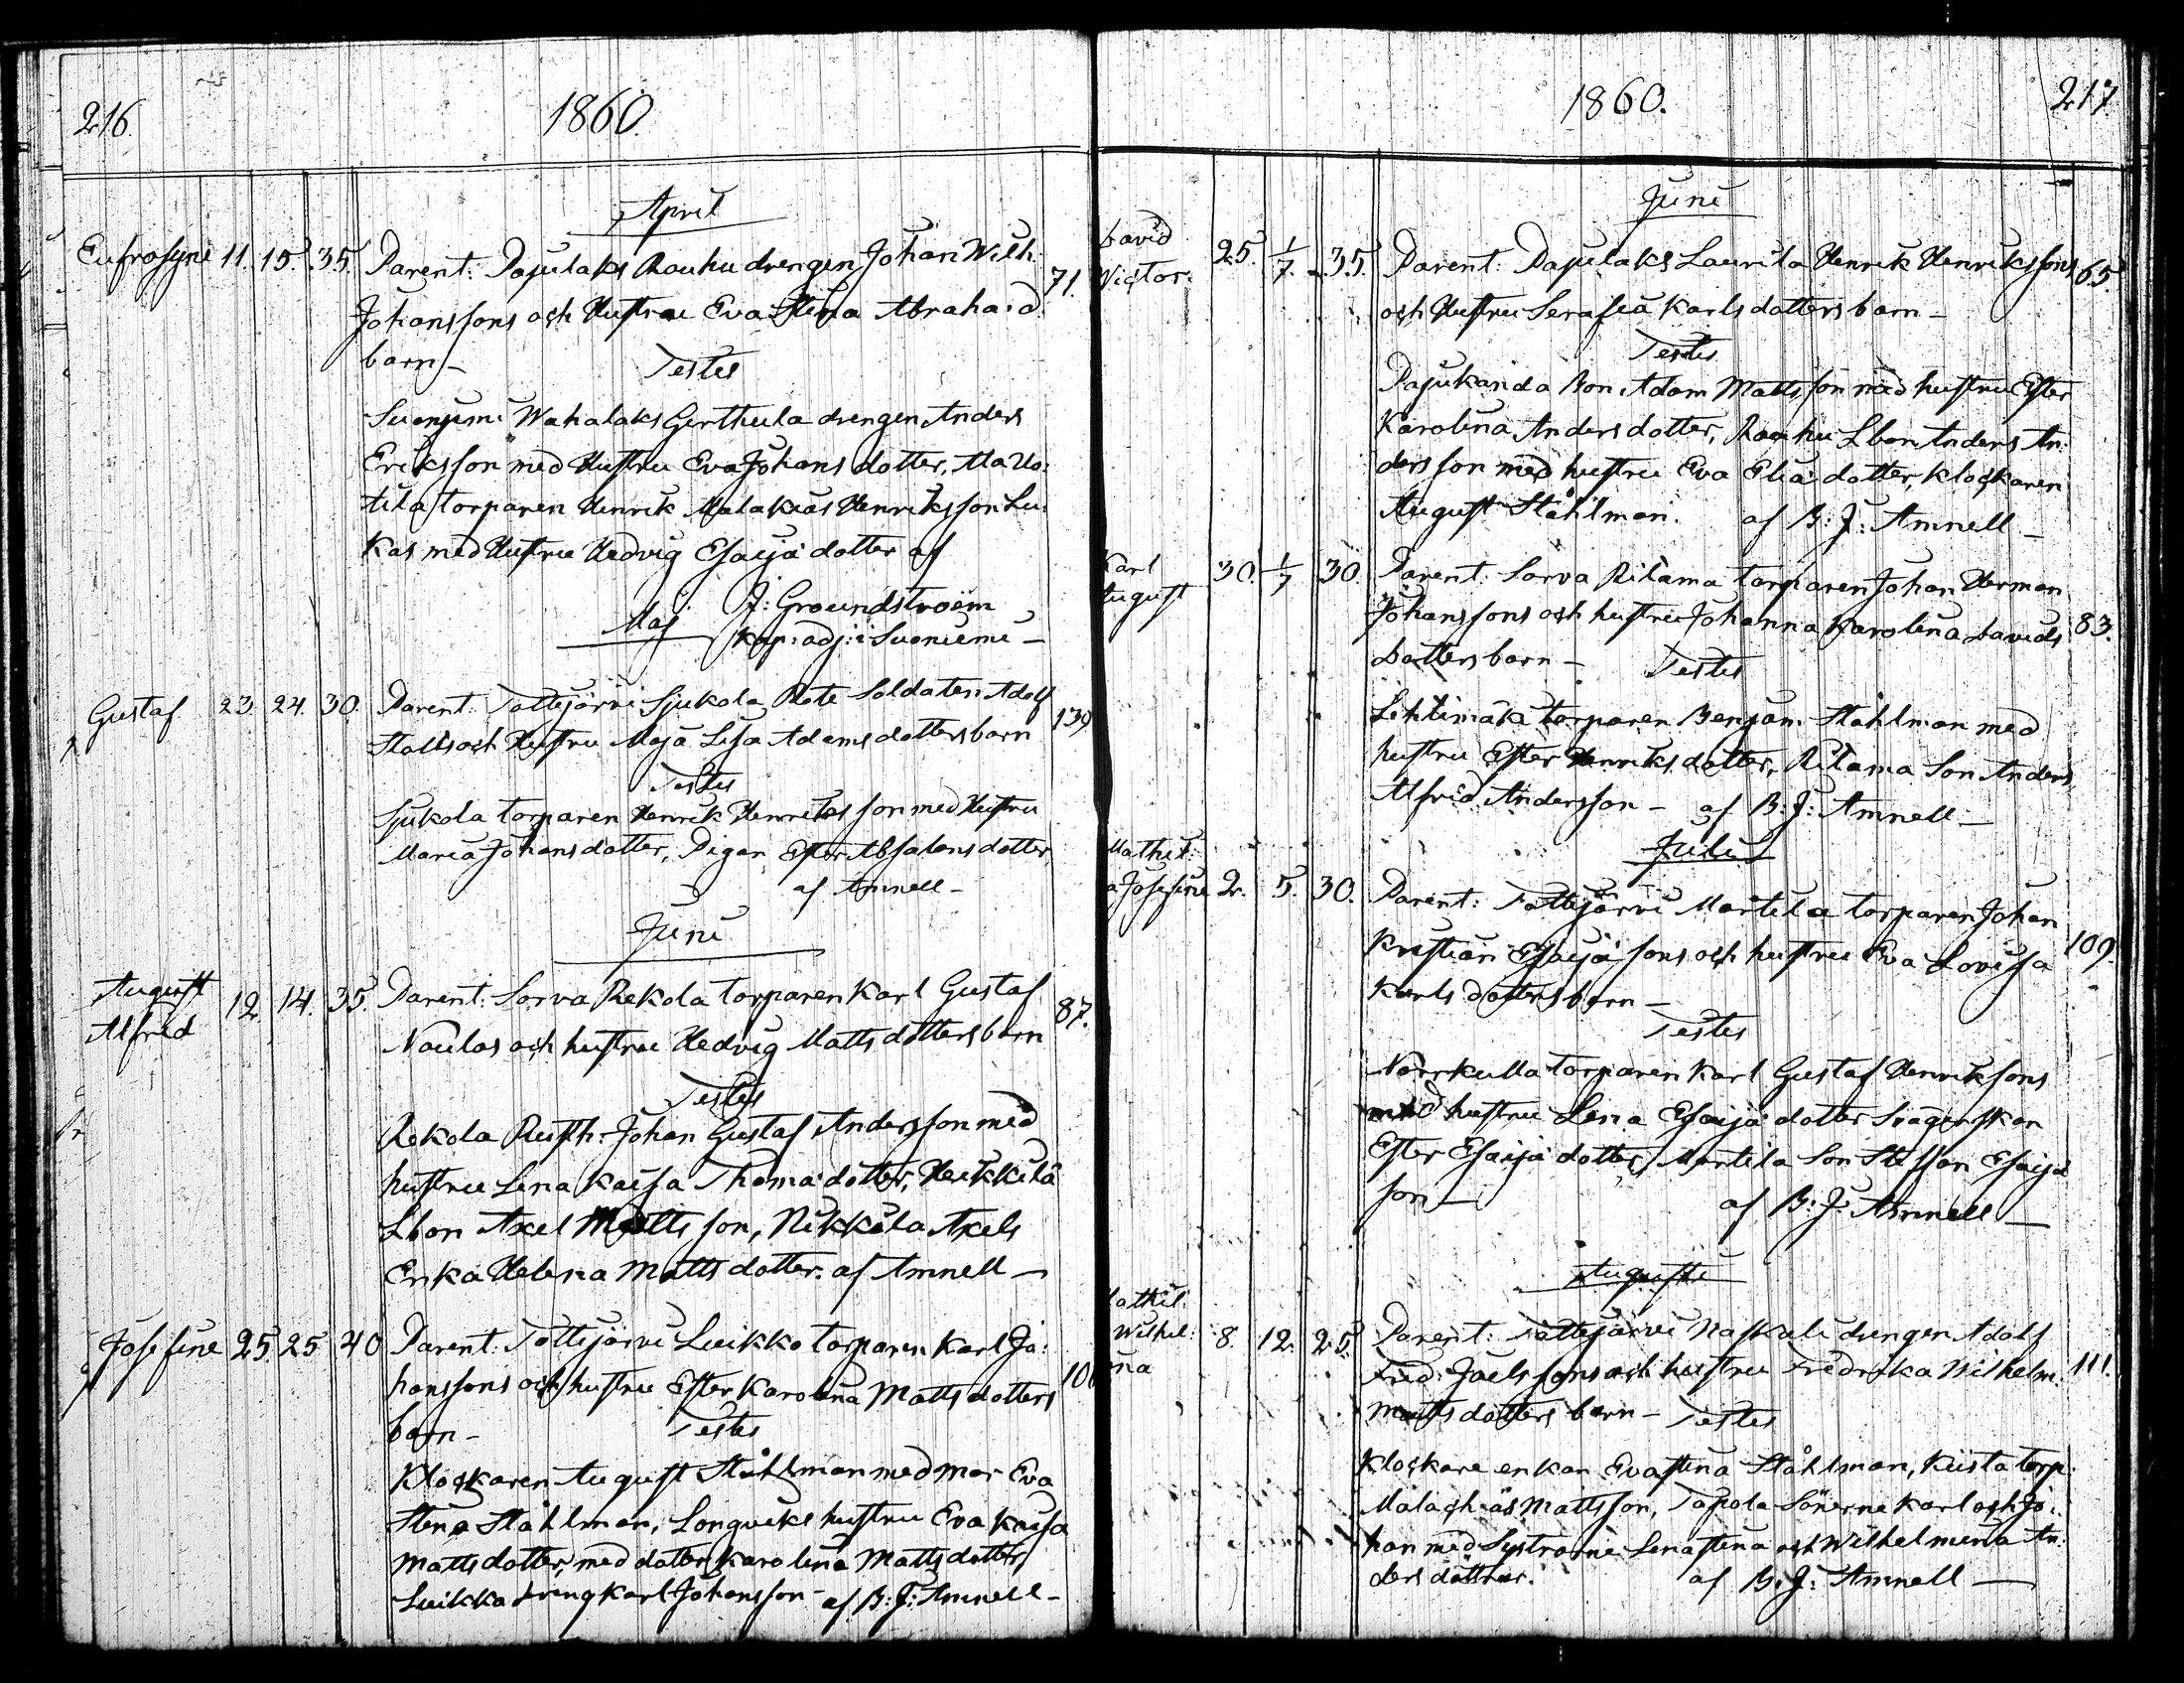 216. 1860.
April
Eufrosyne 11. 15. 35. Parent: Pajulaks Rauhu drengen Johan Wilh.
Johanssons och Hustru Eva Stina Abraha: d. 71.
barn –
Testes
Suonjemi Wahalaks Gerthula drengen Anders
Eriksson med Hustru Eva Johans dotter, Ala Uo:
tila torparen Henrik Malakias Henriksson Lu:
kas med Hustru Hedvig Esaiæ dotter af
J: Groundstroëm
Maj Kap: adj: i Suoniemi –
Gustaf 23. 24. 30. Parent: Tottijärvi Sjukola Rote Soldaten Adolf
Stolts och Hustru Maja Lisa Adams dotters barn 139
Testes
Sjukola torparen Henrik Henriksson med Hustru
Maria Johans dotter, Pigan Ester Absalons dotter,
af Amnell –
Juni
August
Alfred 12. 14. 35. Parent: Sorva Rekola torparen Karl Gustaf
Naulas och hustru Hedvig Matts dotters barn 87.
Testes
Rekola Rusth: Johan Gustaf Andersson med
hustru Lena Kaisa Thoma dotter, Heikkilä
Lbon Axel Mattsson, Nikkilä Axels
Erika Helena Matts dotter. af Amnell –
Josefine 25. 25 40 Parent: Tottijärvi Luikko torparen Karl Jo:
hanssons och hustru Ester Karolina Matts dotters 10
barn –
Testes
Klockaren August Ståhlman med mor Eva
Stina Ståhlman, Longviks hustru Eva Kaisa
Matts dotter, med dotter Karolina Matts dotter,
Luikka dräng Karl Johansson – af B: J: Amnell –
1860. 217.
Juni
David
Victor. 25. 1/7. 35. Parent: Pajulaks Laurila Henrik Henrikssons 65.
och Hustru Serafia Karls dotters barn –
Testes
Pajukanda Bon. Adam Mattsson med hustru Ester
Karolina Anders dotter, Rauhu Lbon Anders An:
dersson med hustru Eva Eliæ dotter, Klockaren
August Ståhlman. af B: J: Amnell –
Karl
August 30. 1/7 30. Parent: Sorva Ritama torparen Johan Herman
Johanssons och hustru Johanna Karolina Davids 83.
dotters barn – Testes
Lehtimäki torparen Benjam. Ståhlman med
hustru Ester Henriks dotter, Ritama Son Anders
Alfrid Andersson – af B: J: Amnell –
Juli
Mathil:
a Josefine 2. 5. 30. Parent: Tottijärvi Martila torparen Johan
Kristian Esaiæ sons och hustru Eva Lovisa 109.
Karls dotters barn –
Testes
Norrkulla torparen Karl Gustaf Henriksons
med hustru Lena Esaiæ dotter Svägerskan
Ester Esaiæ dotter, Martila Son Staffan Esaiæ
son – af B: J: Amnell –
Augusti
athil:
Wilhel:
ina 8. 12. 25. Parent: Tottijärvi Naskali drengen Adolf
Fred: Joels sons och hustru Fredrika Wilhelm. 111.
Matts dotters barn – Testes
Klockare enkan Eva Stina Ståhlman, Kiista torp.
Malachias Mattsson, Tapola Sönerne Karl och Jo:
han med Systrarne Lena Stina och Wilhelmina An:
ders döttrar. af B: J: Amnell –